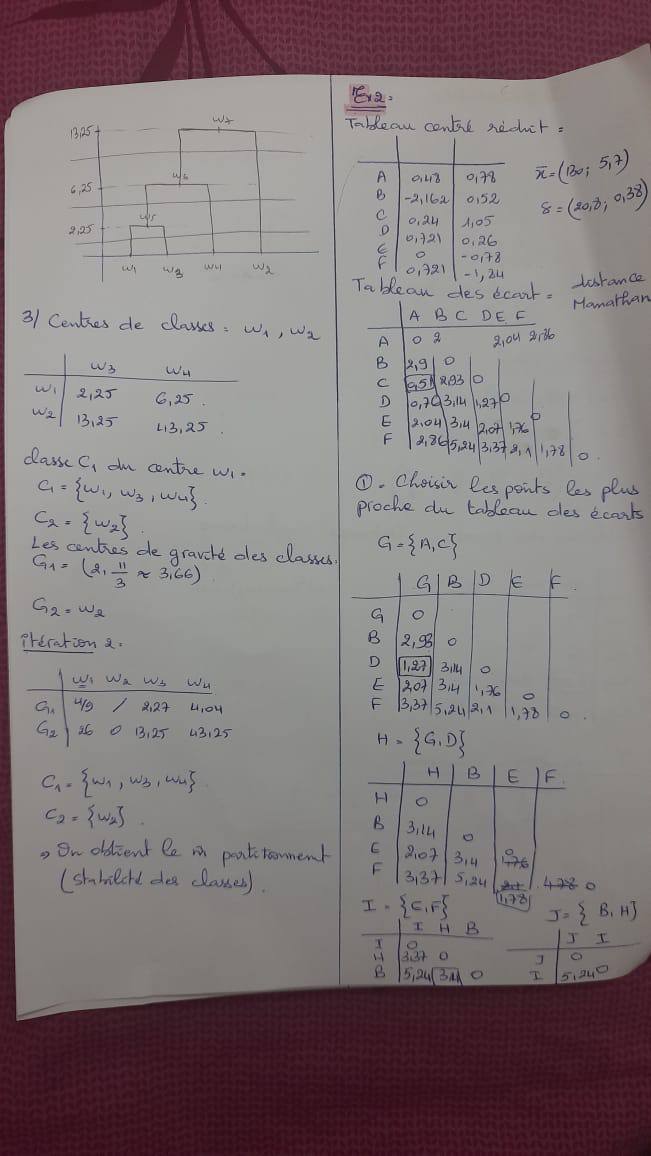 13,25
6,25
2,25
W7
W6
W5
W1 W3 W4 W2
3/ Centres de classes : W1, W2
W3 W4
W1 2,25 6,25
W2 13,25 43,25
classe C1 du centre W1.
C1 = {W1, W3, W4}
C2 = {W2}
Les centres de gravité des classes.
G1 = (2, 11/3 ≈ 3,66)
G2 = W2
itération 2.
W1 W2 W3 W4
G1 4/9 / 2,27 4,04
G2 26 0 13,25 43,25
C1 = {W1, W3, W4}
C2 = {W2}
On obtient le m̂ partitionnement
(stabilité des classes).
Ex2 :
Tableau centré réduit :
A 0,48 0,78
B -2,162 0,52
C 0,24 1,05
D 0,721 0,26
E 0 -0,78
F 0,721 -1,84
x̄ = (130; 5,7)
s = (20,8; 0,38)
Tableau des écart = distance
Manathan
A B C D E F
A 0 2 2,04 2,86
B 2,9 0
C 0,51 2,93 0
D 0,76 3,14 1,27 0
E 2,04 3,4 2,07 1,76 0
F 2,86 5,24 3,37 2,1 1,78 0
①. Choisir les points les plus
proche du tableau des écarts
G = {A,C}
G B D E F
G 0
B 2,93 0
D 1,27 3,14 0
E 2,07 3,4 1,76 0
F 3,37 5,24 2,1 1,78 0
H = {G,D}
H B E F
H 0
B 3,14 0
E 2,07 3,4 0 1,76
F 3,37 5,24 2,1 1,78 0
1,78
I = {E,F} J = {B,H}
I H B
I 0
H 3,37 0
B 5,24 3,14 0
J I
J 0
I 5,24 0